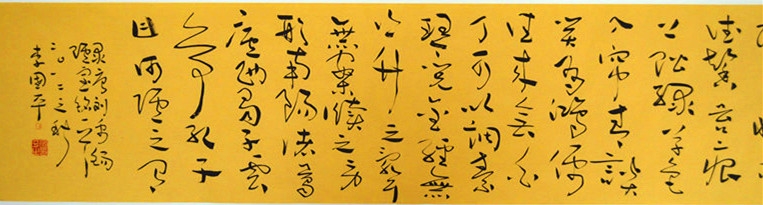 德馨苔痕
上階綠草色
入簾青談
笑有鴻儒
往來無白
丁可以調素
琴閱金經無
絲竹之亂耳
無案牘之勞
形南陽諸葛
廬西蜀子雲
亭孔子
曰何陋之有
錄唐劉禹錫
陋室銘
二〇一二之秋
李國平